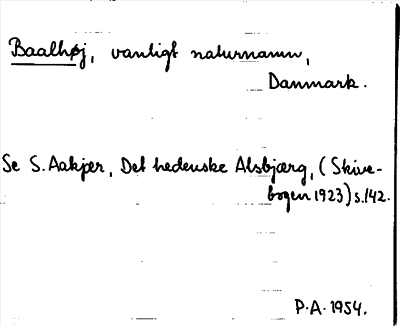 Baalhøj, vanligt naturnamn,
Danmark.
Se S. Aakjær, Det hedenske Alsbjærg, (Skive-
bogen 1923) s. 142.
P.A. 1954.